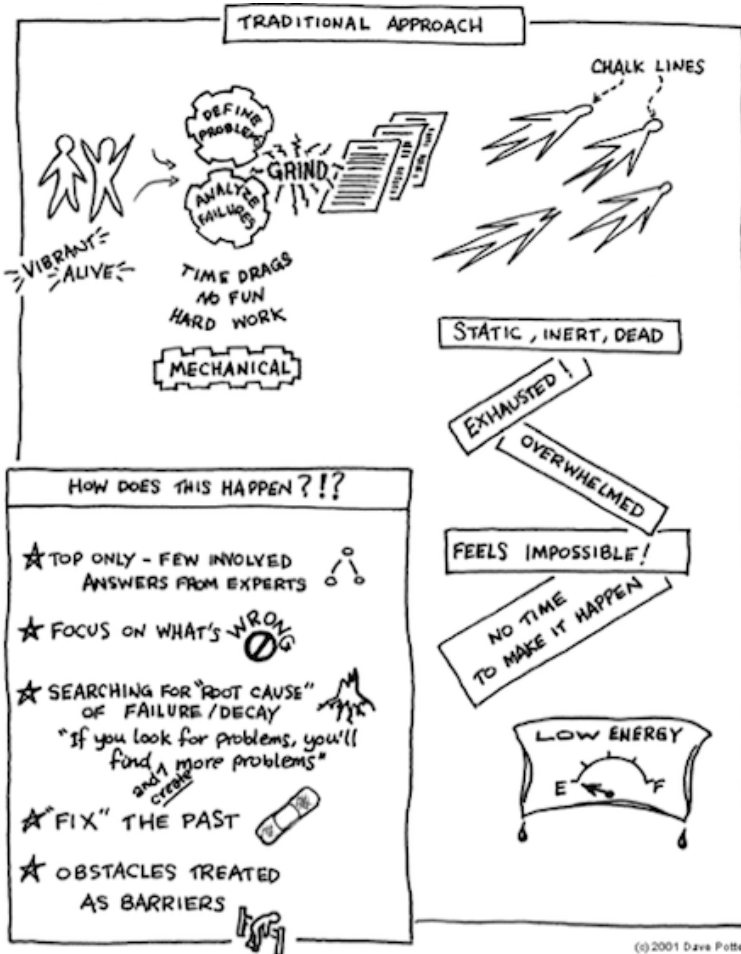 TRADITIONAL APPROACH
CHALK LINES
DEFINE
PROBLEM
GRIND
ANALYZE
FAILURES
VIBRANT
ALIVE
TIME DRAGS
NO FUN
HARD WORK
MECHANICAL
STATIC, INERT, DEAD
EXHAUSTED!
OVERWHELMED
FEELS IMPOSSIBLE!
NO TIME
TO MAKE IT HAPPEN
LOW ENERGY
E F
HOW DOES THIS HAPPEN?!?
TOP ONLY - FEW INVOLVED
ANSWERS FROM EXPERTS
FOCUS ON WHAT'S WRONG
SEARCHING FOR "ROOT CAUSE"
OF FAILURE/DECAY
"If you look for problems, you'll
find more problems"
and
create
"FIX" THE PAST
OBSTACLES TREATED
AS BARRIERS
(c) 2001 Dave Potte